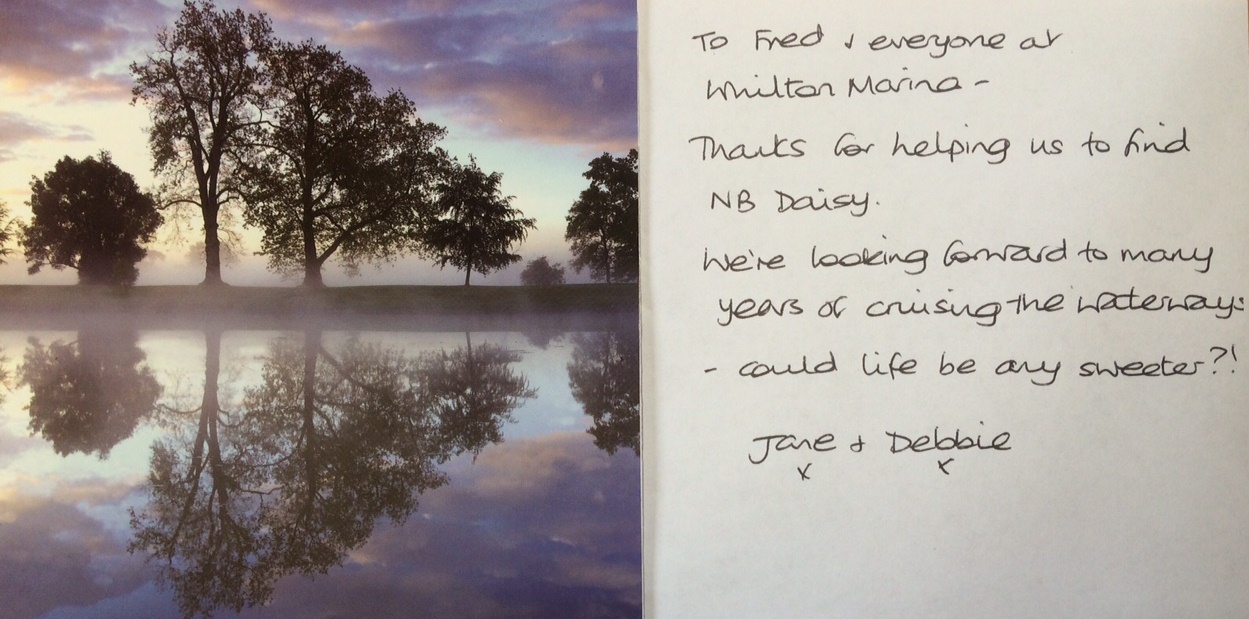 To Fred & everyone at
Whilton Marina -
Thanks for helping us to find
NB Daisy.
We're looking forward to many
years of cruising the waterways
- could life be any sweeter?!
Jane & Debbie
x x